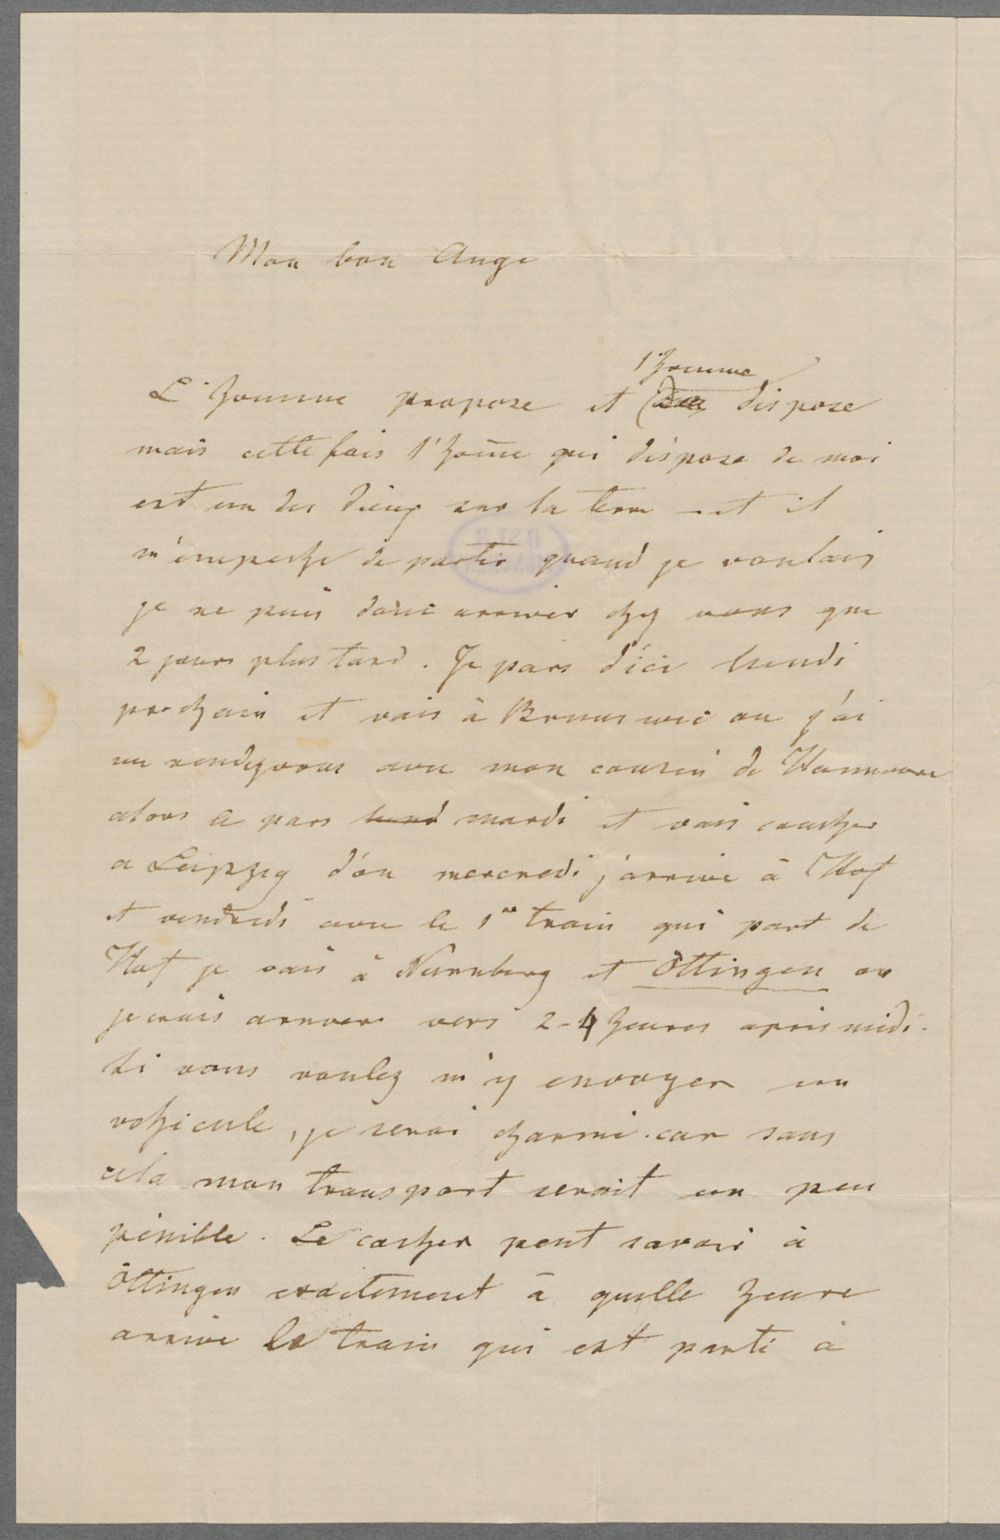 Mon bon Ange
l'homme
L'homme propose et dispose
mais cette fois l'hom̄e qui dispose de moi
est un des dieux sur la terre – et il
m'empeche de partir quand je voulais
je ne puis donc arriver chez vous que
2 jours plus tard. Je pars d'ici lundi
prochain et vais à Brunswic ou j'ai
un rendezvous avec mon cousin de Hannovre
alors a pars lund mardi et vais coucher
a Leipzig d'ou mercredi j'arrive à Hof
et vendredi avec le 1er train qui part de
Hof je vais à Nurnberg et Öttingen ou
je crois arriver vers 2-4 heures apris midi.
Si vous voulez m'y envoyer un
vehicule, je serai charmé. car sans
cela mon transport serait un peu
pénible. Le cocher peut savoir à
Öttingen exactement à quelle heure
arrive le train qui est parti à